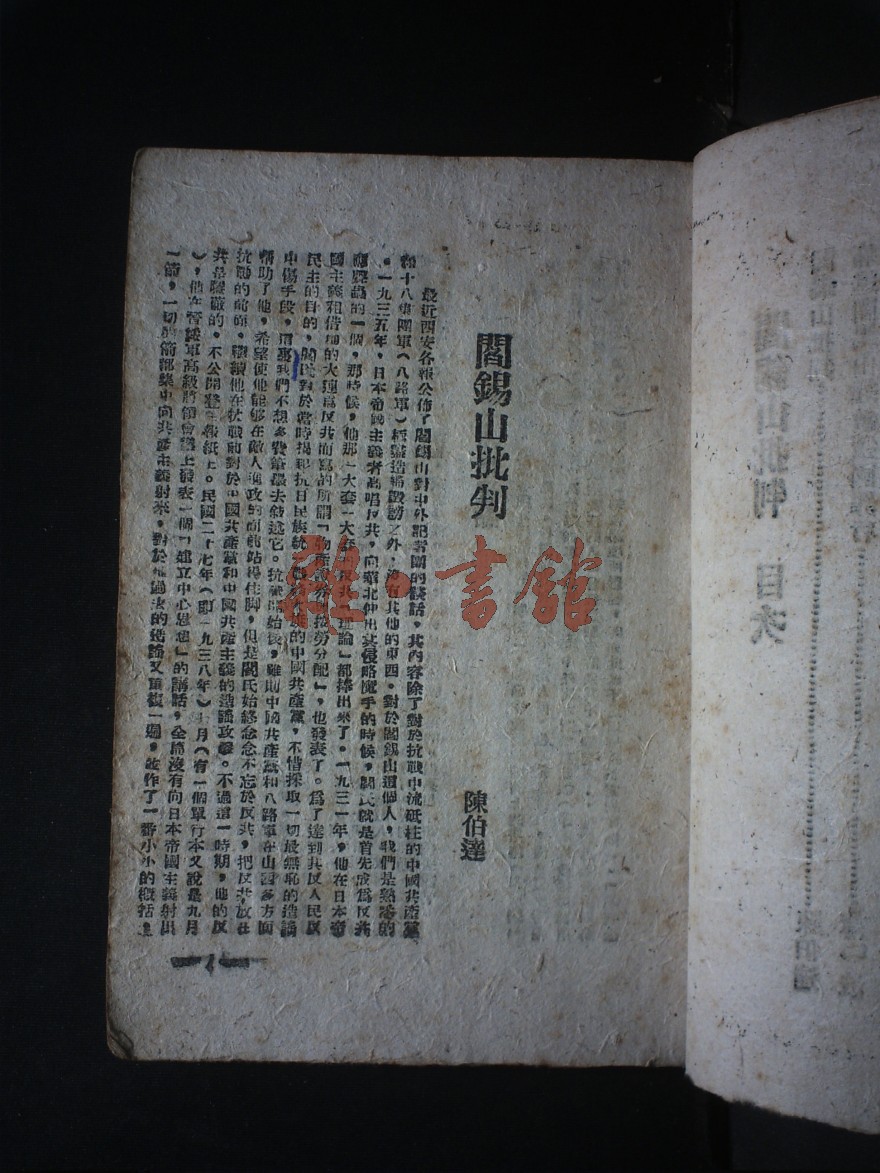 閻錫山批判
陳伯達
最近西安各報公佈了閻錫山對中外記者團的談話，其內容除了對於抗戰中流砥柱的中國共產黨
和十八集團軍（八路軍）極盡造謠毀謗之外，沒有其他的東西。對於閻錫山這個人，我們是熟悉的
。一九三五年，日本帝國主義者高唱反共，向華北伸出其侵略魔手的時候，閻氏就是首先成為反共
應聲蟲的一個，那時候，他那一大套一大套的反共「理論」都捧出來了。一九三一年，他在日本帝
國主義租借地的大連為反共而寫的所謂「物產證券與按勞分配」，也發表了。為了達到其反人民反
民主的目的，閻氏對於當時揭櫫抗日民族統一的中國共產黨，不惜採取一切最無恥的造謠
中傷手段，這裏我們不想多費筆墨去敘述它。抗戰開始後，雖則中國共產黨和八路軍在山西多方面
幫助了他，希望使他能够在敵人進攻的面前站得住脚，但是閻氏始終念念不忘於反共，把反共放在
抗戰的前頭，繼續他在抗戰前對於中國共產黨和中國共產主義的造謠攻擊。不過這一時期，他的反
共是隱蔽的，不公開登在報紙上。民國二十七年（即一九三八年）月（有一個單行本又說是九月
），他在晉綏軍高級將領會議上發表一個「建立中心思想」的講話，全篇沒有向日本帝國主義射出
一箭，一切的箭都集中向共產主義射來，對於他過去的造謠又重複一遍，並作了一番小小的概括：
雜·書館
閻錫山批判 目次